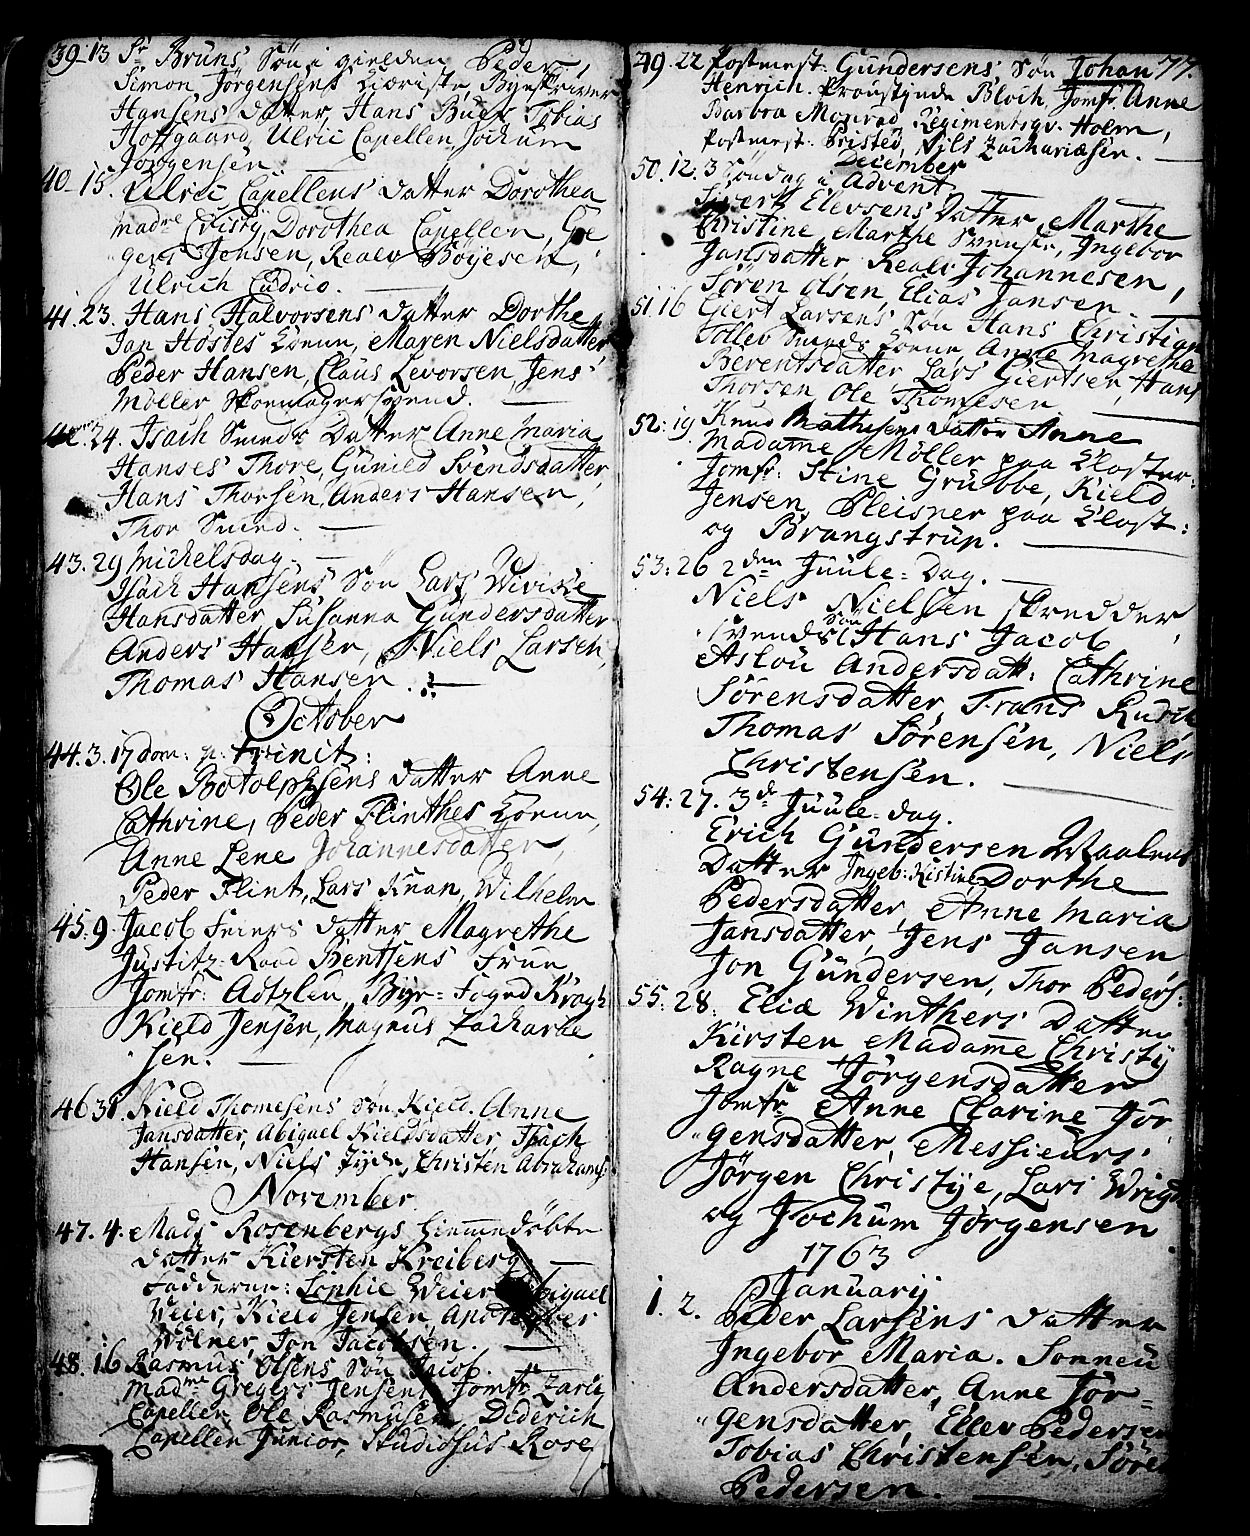 39. 13 Sr. Bruns Søn i gielden Peder,
Simon Jørgensens Kiæriste, Byeskriver
Hansens Datter, Hans Buer, Tobias
Hofgaard, Ulric Capellen, Jochum
Jørgensen.
40. 15. Ulric Capellens Datter Dorothea
Madme Dorothea Capellen,
gers Jonsen, Realv Böyesen,
Ulrich Cudrio.
41. 23. Hans Halvorsens Datter Dorthe
Jan Hostes Koene, Maren Nielsdatter,
Peder Hansen, Claus Levorsen, Jens
Møller Skoemagersvend.
24. Isach Smeds Datter Anne Maria
Hanses Thore, Gunild Svendsdatter,
Hans Thorsen, Anders Hansen,
Thor Smed.
43. 29 Michelsdag.
Isach Hansens Søn Lars, Wiviche
Hansdatter, Susanna Gundersdatter
Anders Hansen, Niels Larsen,
Thomas Hansen.
October
44. 3. 17 dom: p: trinit:
Ole Botolphsens Datter Anne
Cathrine, Peder Flinthes Koene,
Anne Lene Johannesdatter,
Peder Flint, Lars Knan, Wilhelm
45. 9. Jacob Feiers Datter Magrethe
Justitz Raad Bentsens Frue
Jomfr: Adtzlen, Bye-Foged Kragh
Kield Jensen, Magnus Zacharie
sen.
46 31. Kield Thomesens Søn Kield. Anne
Jansdatter, Abigael Kieldsdatter Isach
Hansen, Niels Jyde, Christen Abrahams:
November
47. 4. Mads Rosenbergs hiemmedøbte
Datter Kiersten Kreiberg.
Fadderne: Sophie Weier, Abigael
Weier, Kield Jensen, Apotheqver
Wølner, Jon Jacobsen.
48. 16 Rasmus Olsens Søn Jacob.
Madme Gregers Jensen, Jomfr Zarig
Capellen, Ole Rasmusen, Diderich
Capellen Junior, Studiosus Rose
49. 22 Postmest: Gundersens Søn Johan 77.
Henrich. Proustinde Bloch, Jomfr. Anne
Barbra Monrad, Regimentsqv. Holm,
Postmest: Bristed, Nils Zachariæsen.
December
50. 12. 3 Søndag i Advent
Sivert Elevsens Datter Marthe
Christine, Marthe Svends, Ingebor
Jansdatter Realv Johannesen,
Søren Olsen, Elias Jansen
51. 16 Giert Larsens Søn Hans Christian
Tollev Smeds Koene, Anne Magrethe
Berentsdatter Lars Giertsen, Hans
Thorsen, Ole Thomesen
52. 19 Knud Mathisens Datter Anne
Madame Møller paa Closter:
Jomfr: Stine Grubbe, Kield
Jensen, Pleisner paa Clost:
og Brangstrup.
53. 26 2den Juule-Dag.
Niels Nielsen Skredder
svends Søn Hans Jacob
Aslou Andersdatt: Cathrine
Sørensdatter, Frans Kusk
Thomas Sørensen, Niels
Christensen.
54. 27. 3de Juule-dag.
Erich Gundersen Waalens
Datter Ingeb: Kistine Dorthe
Pedersdatter, Anne Maria
Jansdatter, Jens Jansen
Jon Gundersen, Thor Peders:
55. 28. Eliæ Winthers Datter
Kirsten Madame Christij
Ragne Jørgensdatter
Jomfr Anne Clarine Jør
gensdatter, Messieurs.
Jørgen Christije, Lars Wrigt
og Jochum Jørgensen
1763
Januarij
1. 2. Peder Larsens Datter
Ingebor Maria. Sonneu
Andersdatter, Anne Jør-
gensdatter, Ellev Pedersen
Tobias Christensen, Søren
Pedersen.